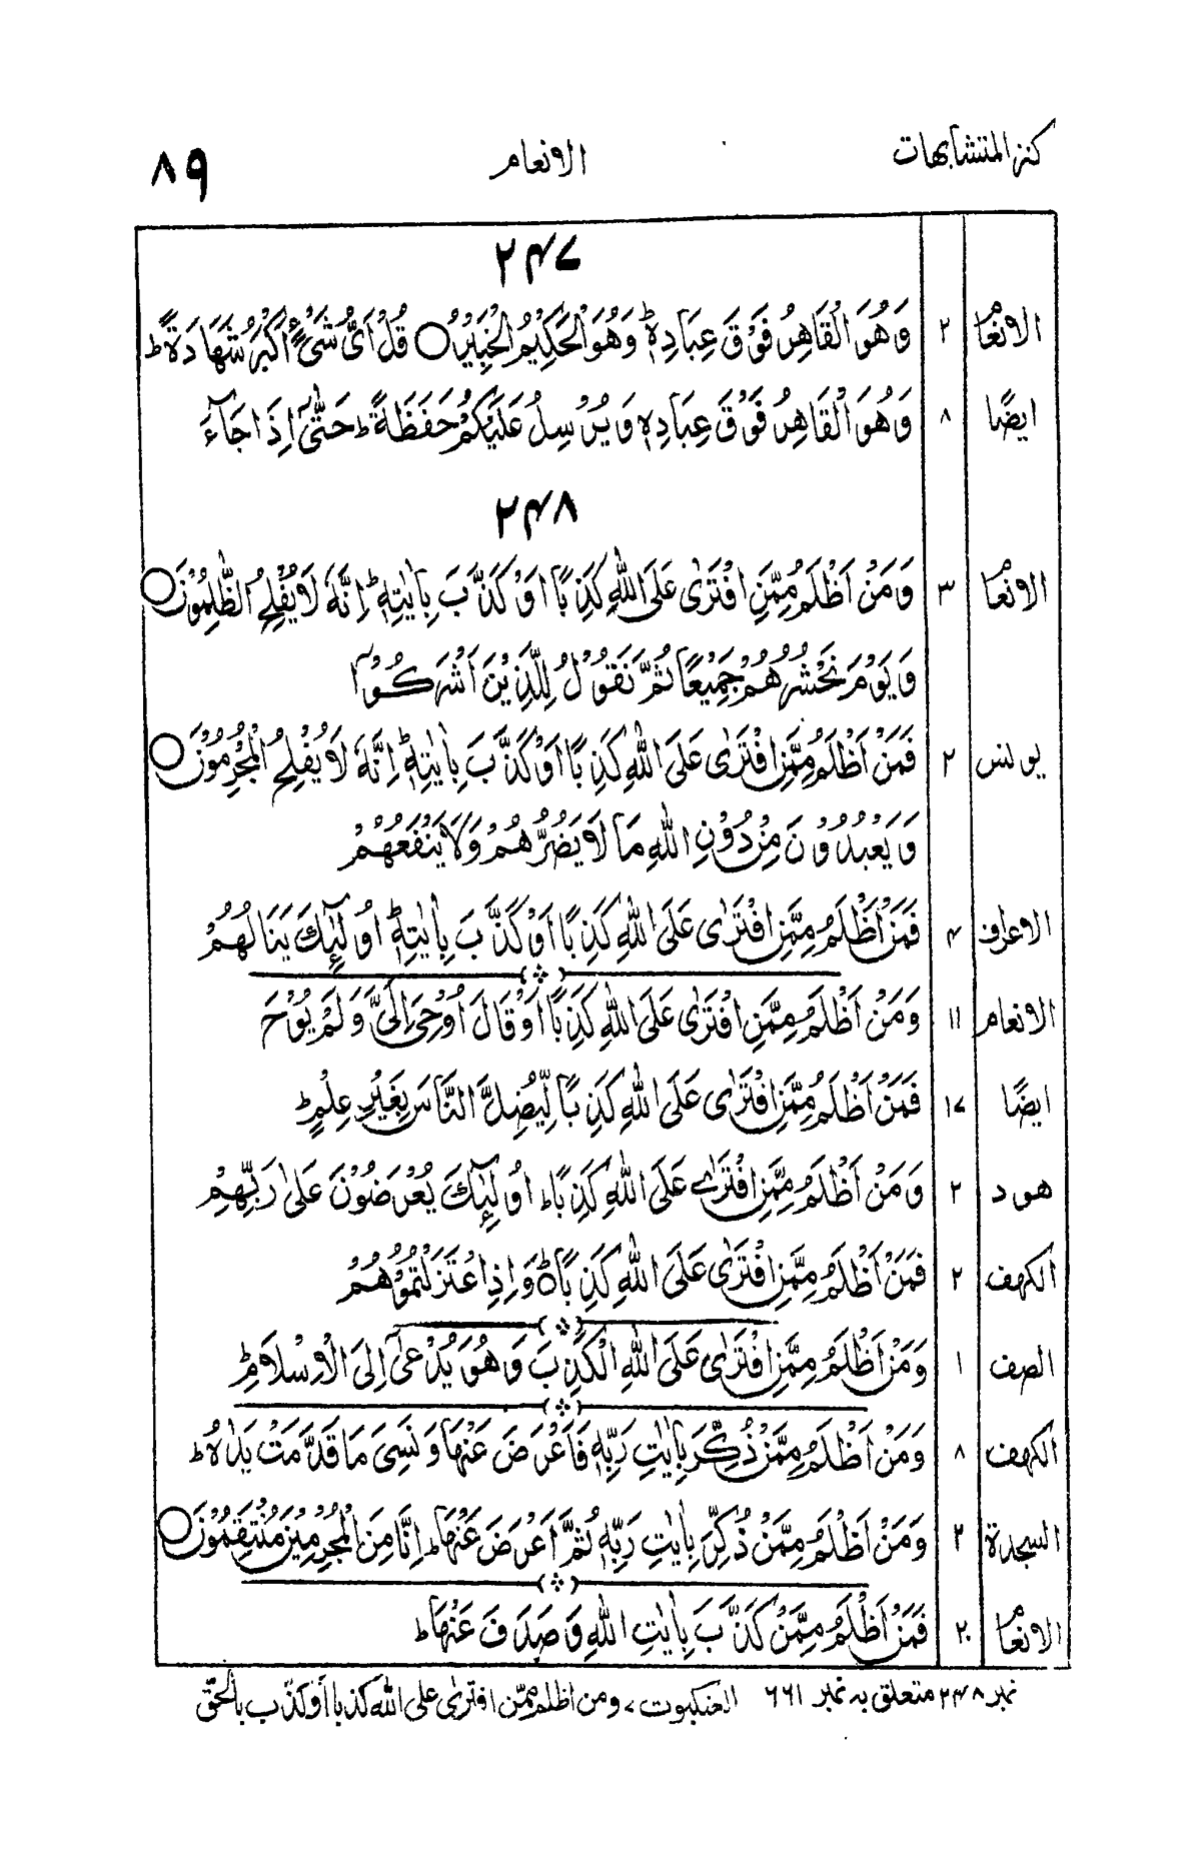 كنز المتشابهات الانعام ٨٩
٢٤٧
الانعام ٢ وَهُوَ الْقَاهِرُ فَوْقَ عِبَادِهٖ ؕ وَهُوَ الْحَكِيْمُ الْخَبِيْرُ ○ قُلْ اَىُّ شَىْءٍ اَكْبَرُ شَهَادَةً ؕ
ايضًا ٨ وَهُوَ الْقَاهِرُ فَوْقَ عِبَادِهٖ وَيُرْسِلُ عَلَيْكُمْ حَفَظَةً ؕ حَتّٰٓى اِذَا جَآءَ
٢٤٨
الانعام ٣ وَمَنْ اَظْلَمُ مِمَّنِ افْتَرٰى عَلَى اللّٰهِ كَذِبًا اَوْ كَذَّبَ بِاٰيٰتِهٖ ؕ اِنَّهٗ لَا يُفْلِحُ الظّٰلِمُوْنَ ○
وَيَوْمَ نَحْشُرُهُمْ جَمِيْعًا ثُمَّ نَقُوْلُ لِلَّذِيْنَ اَشْرَكُوْٓا
يونس ٢ فَمَنْ اَظْلَمُ مِمَّنِ افْتَرٰى عَلَى اللّٰهِ كَذِبًا اَوْ كَذَّبَ بِاٰيٰتِهٖ ؕ اِنَّهٗ لَا يُفْلِحُ الْمُجْرِمُوْنَ ○
وَيَعْبُدُوْنَ مِنْ دُوْنِ اللّٰهِ مَا لَا يَضُرُّهُمْ وَلَا يَنْفَعُهُمْ
الاعراف ٤ فَمَنْ اَظْلَمُ مِمَّنِ افْتَرٰى عَلَى اللّٰهِ كَذِبًا اَوْ كَذَّبَ بِاٰيٰتِهٖ ؕ اُولٰٓئِكَ يَنَالُهُمْ
الانعام ١١ وَمَنْ اَظْلَمُ مِمَّنِ افْتَرٰى عَلَى اللّٰهِ كَذِبًا اَوْ قَالَ اُوْحِىَ اِلَىَّ وَلَمْ يُوْحَ
ايضًا ١٧ فَمَنْ اَظْلَمُ مِمَّنِ افْتَرٰى عَلَى اللّٰهِ كَذِبًا لِّيُضِلَّ النَّاسَ بِغَيْرِ عِلْمٍ ؕ
هود ٢ وَمَنْ اَظْلَمُ مِمَّنِ افْتَرٰے عَلَى اللّٰهِ كَذِبًا ؕ اُولٰٓئِكَ يُعْرَضُوْنَ عَلٰى رَبِّهِمْ
الكهف ٢ فَمَنْ اَظْلَمُ مِمَّنِ افْتَرٰى عَلَى اللّٰهِ كَذِبًا ؕ وَاِذِ اعْتَزَلْتُمُوْهُمْ
الصف ١ وَمَنْ اَظْلَمُ مِمَّنِ افْتَرٰى عَلَى اللّٰهِ الْكَذِبَ وَهُوَ يُدْعٰٓى اِلَى الْاِسْلَامِ ؕ
الكهف ٨ وَمَنْ اَظْلَمُ مِمَّنْ ذُكِّرَ بِاٰيٰتِ رَبِّهٖ فَاَعْرَضَ عَنْهَا وَنَسِىَ مَا قَدَّمَتْ يَدٰهُ ؕ
السجدة ٢ وَمَنْ اَظْلَمُ مِمَّنْ ذُكِّرَ بِاٰيٰتِ رَبِّهٖ ثُمَّ اَعْرَضَ عَنْهَا ؕ اِنَّا مِنَ الْمُجْرِمِيْنَ مُنْتَقِمُوْنَ ○
الانعام ٢٠ فَمَنْ اَظْلَمُ مِمَّنْ كَذَّبَ بِاٰيٰتِ اللّٰهِ وَصَدَفَ عَنْهَا ؕ
نمبر ٢٤٨ متعلق به نمبر ٦٦١ العنكبوت ٧ ومن اظلم ممن افترٰى على الله كذبا أو كذّب بالحقّ